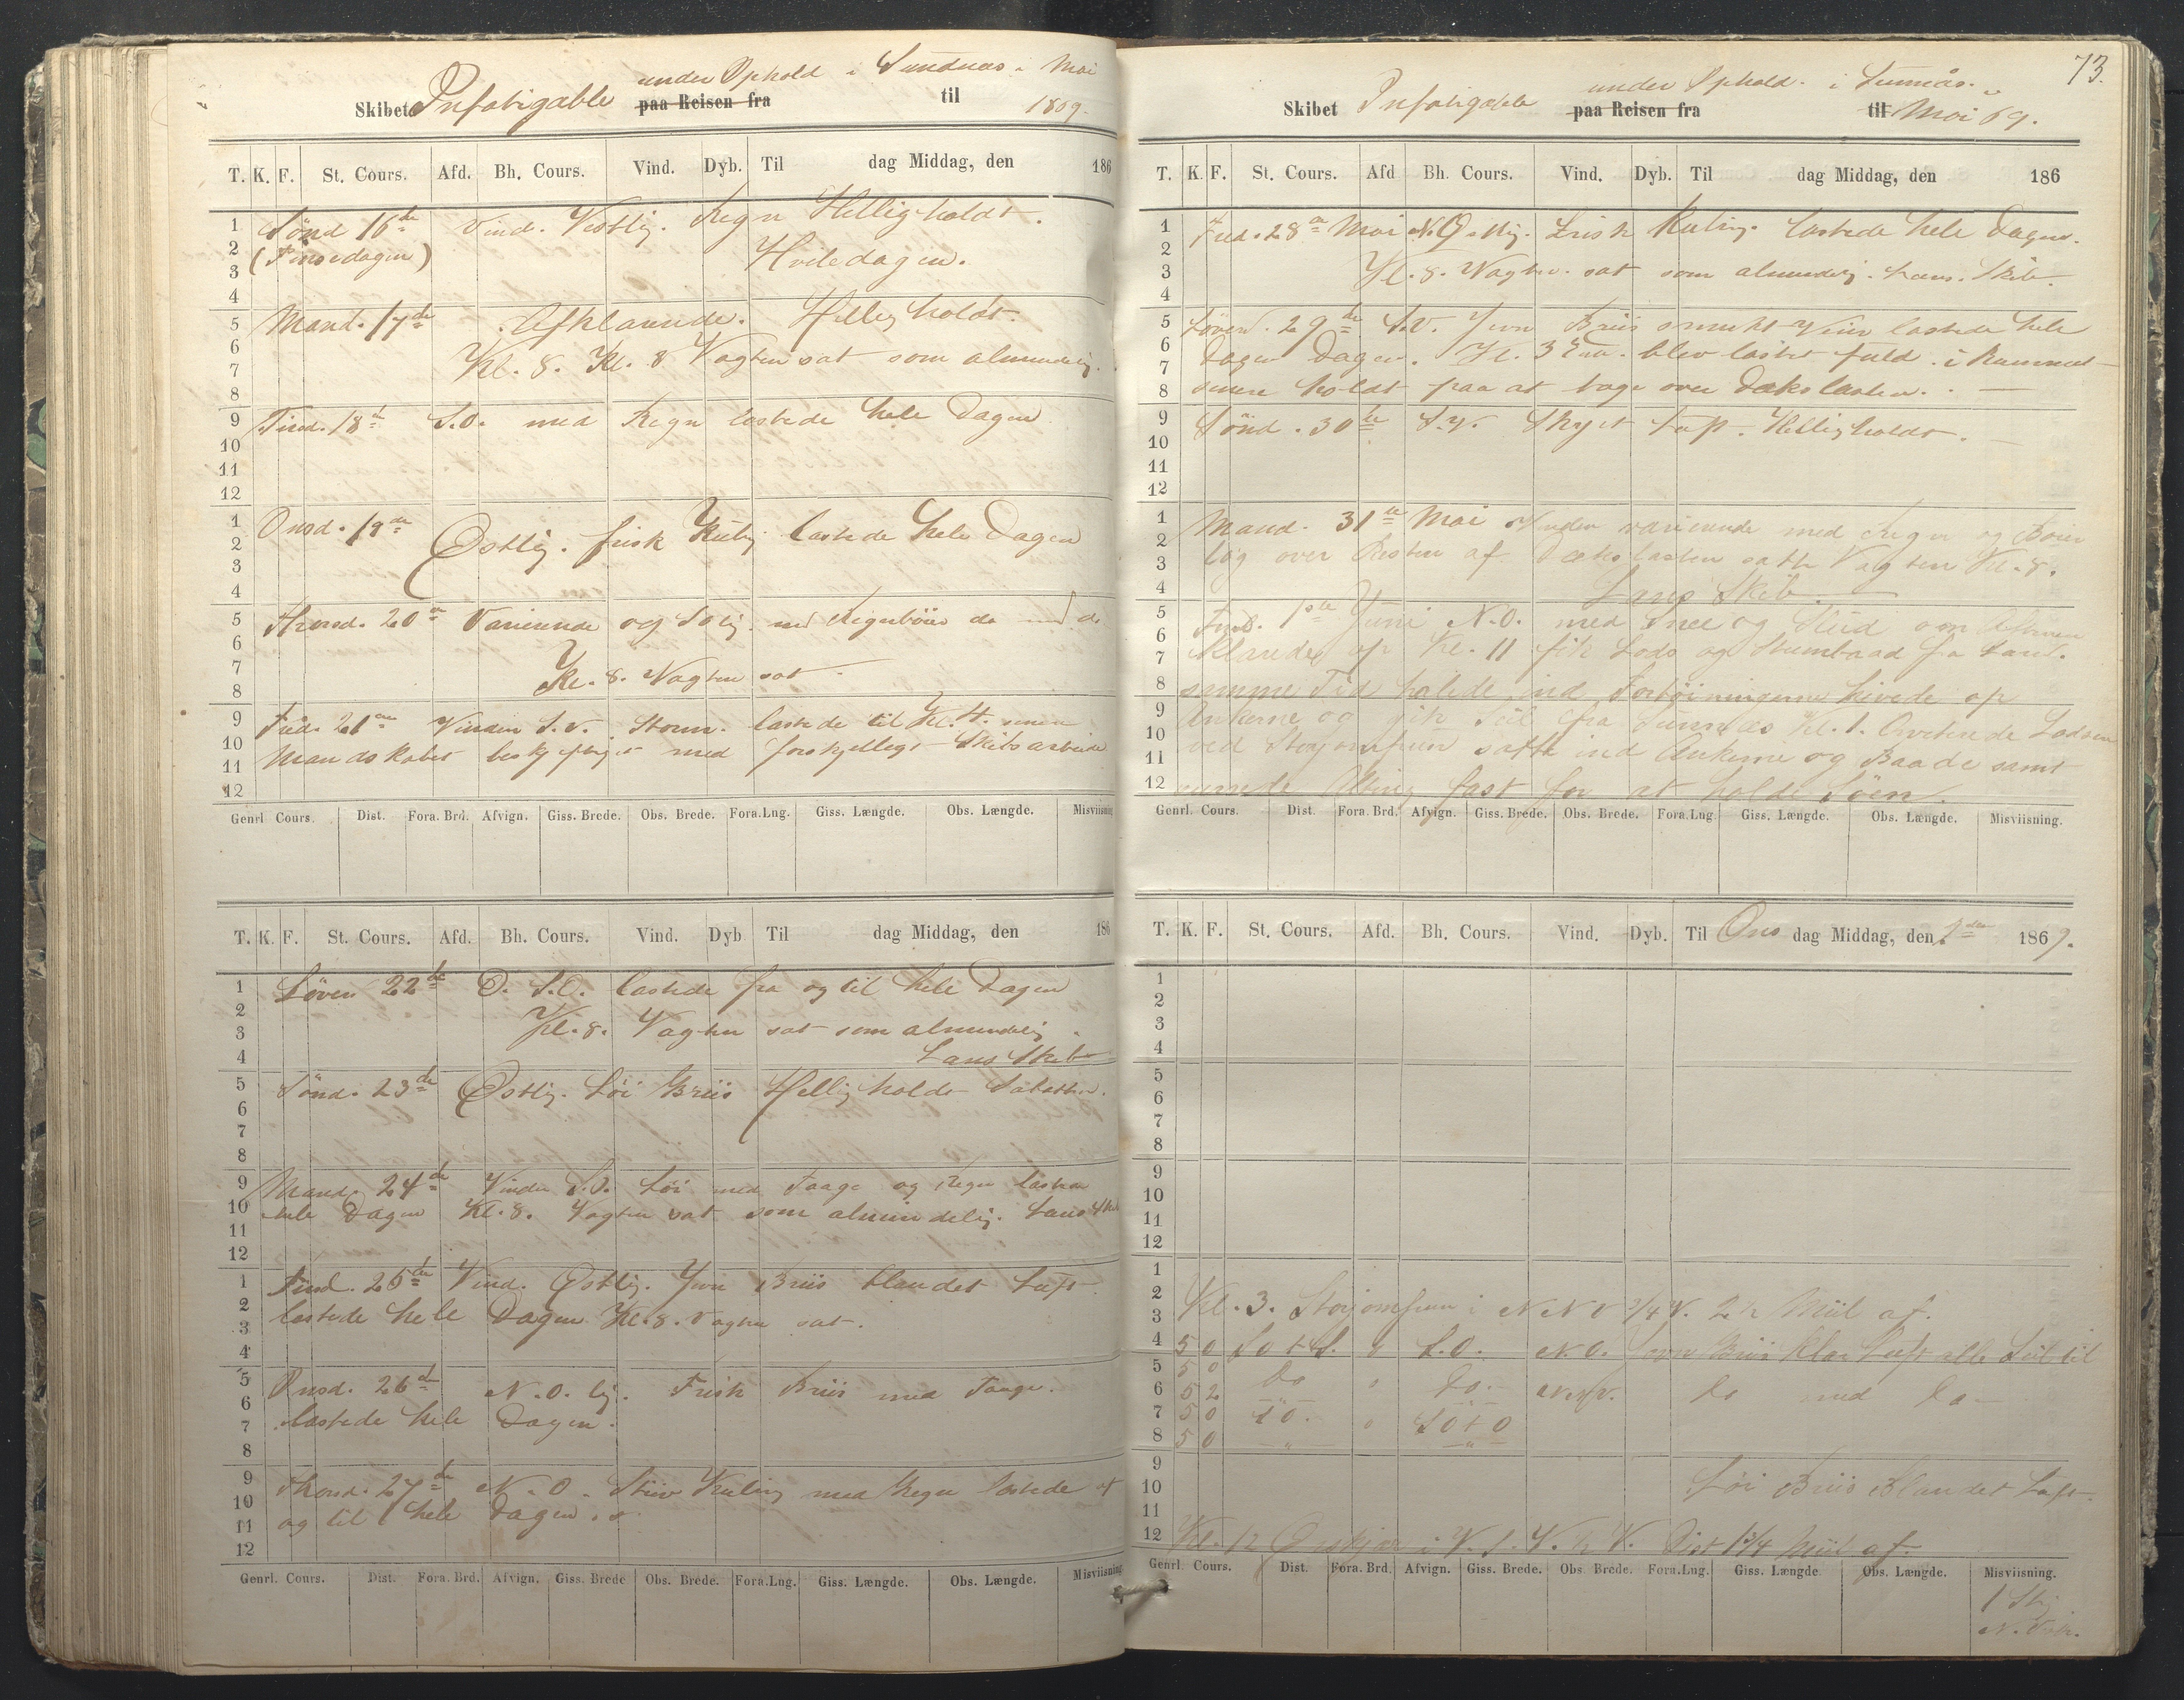 under Ophold i Sundnæs i Mai
Skibet Infatigable paa Reisen fra til 1869.
T. K. F. St. Cours. Afd. Bh. Cours. Vind. Dyb. Til dag Middag, den 186
1 Sönd 16de Vind. Vestlig. Regn Helligholdt.
2 (Pinsedagen) Hviledagen.
3
4
5 Mand. 17de Afklarende. Helligholdt.
6 Kl. 8. Kl. 8 Vagten sat som almindelig.
7
8
9 Tirsd. 18de S.O. med Regn lastede hele Dagen
10
11
12
1 Onsd. 19de Östlig. frisk Kuling lastede hele Dagen
2
3
4
5 Thorsd. 20de Varierende og Solig. med Regnböier
6
7 Kl. 8. Vagten sat
8
9 Fred. 21de Vinden S.V. Storm. lastede til Kl. 4. senere
10 Mandskabet beskjeftiget med forskjelligt Skibsarbeide
11
12
Genrl Cours. Dist. Fora. Brd. Afvign. Giss. Brede. Obs. Brede. Fora.Lng. Giss. Længde. Obs. Længde. Misviisning
T. K. F. St. Cours. Afd. Bh. Cours. Vind. Dyb Til dag Middag, den 186
1 Löven 22de O. S.O. lastede fra og til hele Dagen
2 Kl. 8. Vagten sat som almindelig.
3
4 Læns Skib
5 Sönd. 23de Östlig. Löi Briis Helligholdt Sabathen.
6
7
8
9 Mand. 24de Vinden S.O. Löi med Taage og Regn lastede
10 hele Dagen Kl. 8. Vagten sat som almindelig. Læns Skib
11
12
1 Tirsd. 25de Vind. Östlig. Jevn Briis blandet Luft
2 lastede hele Dagen Kl. 8. Vagten sat.
3
4
5 Onsd. 26de N.O. lig. Frisk Briis med Taage.
6 lastede hele Dagen.
7
8
9 Thorsd. 27de N.O. Stiv Kuling med Regn lastede af
10 og til hele Dagen.
11
12
Genrl. Cours. Dist. Fora. Brd. Afvign. Giss. Brede Obs. Brede. Fora.Lng. Giss. Længde. Obs. Længde. Misviisning
73.
under Ophold. i Sunnæs.
Skibet Infatigable paa Reisen fra til Mai 69.
T. K. F. St. Cours. Afd Bh. Cours. Vind. Dyb. Til dag Middag, den 186
1 Fred. 28de Mai N.Ostlig. Frisk Kuling. lastede hele Dagen.
2 Kl. 8. Vagten sat som almindelig. Læns. Skib.
3
4
5 Löverd. 29de S.V. Jevn Briis smukt Veir lastede hele
6 Dagen Dagen. Kl. 3 Em. blev lastet fuld i Rummet
7 senere holdt paa at tage over Dækslasten.
8
9 Sönd. 30te S.V. Skyet Luft. Helligholdt.
10
11
12
1 Mand. 31te Mai Vinden varierende med Regn og Böier
2 tog over Resten af Dækslasten satte Vagten Kl. 8.
3
4 Læns Skib
5 Tirsd. 1ste Juni N.O. med Snee og Slud om Aftenen
6 Klarede op Kl. 11 fik Lods og Slumbaad fra Land.
7 samme Tid halede ind Fortöiningerne hivede op
8 Ankerne og gik Seil fra Sunnæs Kl. 1. Qvitterede Lodsen
9 ved Storjomfruen satte ind Ankerne og Baade samt
10 Alting fast for at holde Söen.
11
12
Genrl. Cours. Dist. Fora. Brd. Afvign. Giss. Brede. Obs. Brede. Fora.Lng Giss. Længde. Obs. Længde. Misviisning.
T. K. F. St. Cours. Afd. Bh. Cours. Vind. Dyb. Til Ons dag Middag, den 2den 1869.
1
2
3
4
5
6
7
8
9
10
11
12
1
2 Kl. 3. Storjomfruen i NNV 3/4 V. 2 1/2 Miil af.
3
4 5 0 SOtS. 0 S.O. N.O. Jevn Briis klar Luft alle Seil til
5 5 0 Do 0 Do. NNV. Do med Do
6 5 2
7 5 0 SO. 0 SOtO
8 5 0 " "
9
10 Löi Briis Blandet Luft.
11
12 Kl. 12 i V.S.V. 1/2 V. Dist 1 3/4 Miil af.
Genrl Cours. Dist. Fora. Brd. Afvign. Giss. Brede. Obs. Brede. Fora.Lng. Giss. Længde Obs. Længde. Misviisning.
1 Stg
N. Vstr.